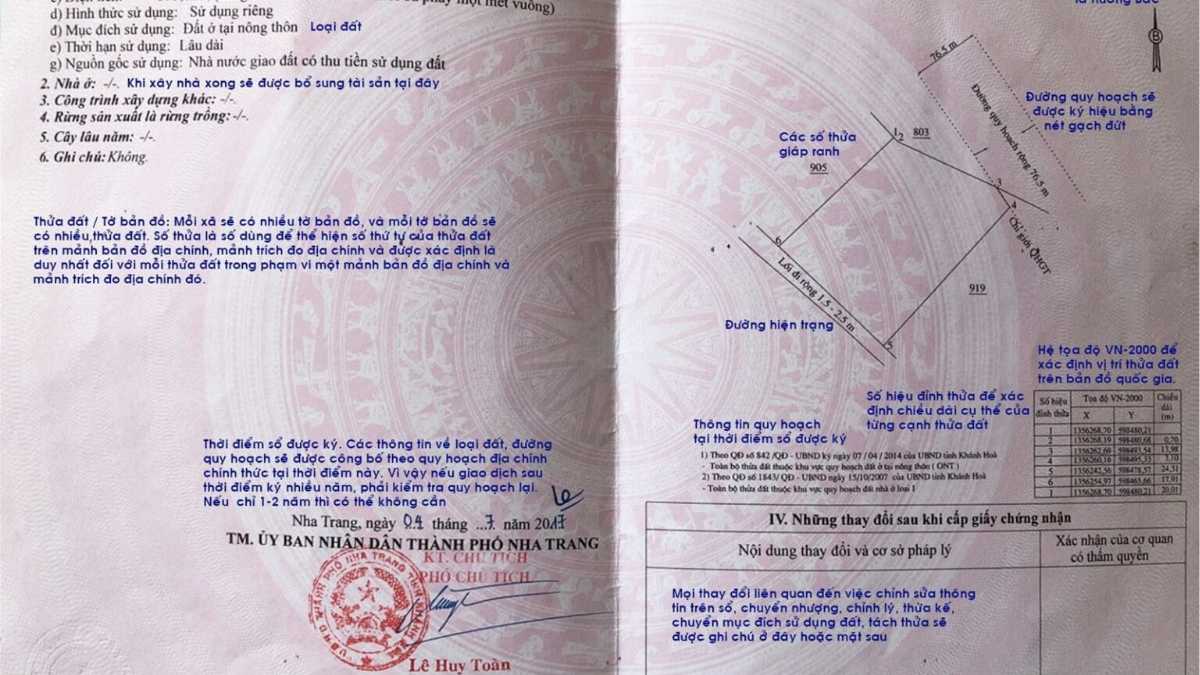 d) Hình thức sử dụng: Sử dụng riêng
đ) Mục đích sử dụng: Đất ở tại nông thôn Loại đất
e) Thời hạn sử dụng: Lâu dài
g) Nguồn gốc sử dụng: Nhà nước giao đất có thu tiền sử dụng đất
2. Nhà ở: -/- Khi xây nhà xong sẽ được bổ sung tài sản tại đây
3. Công trình xây dựng khác: -/-.
4. Rừng sản xuất là rừng trồng: -/-.
5. Cây lâu năm: -/-.
6. Ghi chú: Không.
Thửa đất / Tờ bản đồ: Mỗi xã sẽ có nhiều tờ bản đồ, và mỗi tờ bản đồ sẽ
có nhiều,thửa đất. Số thửa là số dùng để thể hiện số thứ tự của thửa đất
trên mảnh bản đồ địa chính, mảnh trích đo địa chính và được xác định là
duy nhất đối với mỗi thửa đất trong phạm vi một mảnh bản đồ địa chính và
mảnh trích đo địa chính đó.
Thời điểm sổ được ký. Các thông tin về loại đất, đường
quy hoạch sẽ được công bố theo quy hoạch địa chính
chính thức tại thời điểm này. Vì vậy nếu giao dịch sau
thời điểm ký nhiều năm, phải kiểm tra quy hoạch lại.
Nếu chỉ 1-2 năm thì có thể không cần
Nha Trang, ngày 04 tháng ...7 năm 2017
TM. ỦY BAN NHÂN DÂN THÀNH PHỐ NHA TRANG
KT. CHỦ TỊCH
PHÓ CHỦ TỊCH
Lê Huy Toàn
là hướng Bắc
B
76.5 m
Đường quy hoạch rộng 76.5 m
Đường quy hoạch sẽ
được ký hiệu bằng
nét gạch đứt
Các số thửa
giáp ranh
905
1
2
803
3
4
Chỉ giới QHGT
6
Lối đi rộng 1.5 - 2.5 m
919
Đường hiện trạng
5
Hệ tọa độ VN-2000 để
xác định vị trí thửa đất
trên bản đồ quốc gia.
Số hiệu đỉnh thửa để xác
định chiều dài cụ thể của
từng cạnh thửa đất
Số hiệu đỉnh thửa Tọa độ VN-2000 Chiều dài (m)
X Y
1 1356268,70 598480,21
2 1356268,19 598480,68 0,70
3 1356262,69 598493,54 13,98
4 1356260,10 598495,33 3,10
5 1356242,56 598478,57 24,31
6 1356254,97 598465,66 17,91
1 1356268,70 598480,21 20,01
Thông tin quy hoạch
tại thời điểm sổ được ký
1) Theo QĐ số 842 /QĐ - UBND ký ngày 07 / 04 / 2014 của UBND tỉnh Khánh Hoà
- Toàn bộ thửa đất thuộc khu vực quy hoạch đất ở tại nông thôn ( ONT )
2) Theo QĐ số 1843/ QĐ - UBND ngày 15/10/2007 của UBND tỉnh Khánh Hoà
- Toàn bộ thửa đất thuộc khu vực quy hoạch đất nhà ở loại 1
IV. Những thay đổi sau khi cấp giấy chứng nhận
Nội dung thay đổi và cơ sở pháp lý
Xác nhận của cơ quan
có thẩm quyền
Mọi thay đổi liên quan đến việc chỉnh sửa thông
tin trên sổ, chuyển nhượng, chỉnh lý, thừa kế,
chuyển mục đích sử dụng đất, tách thửa sẽ
được ghi chú ở đây hoặc mặt sau